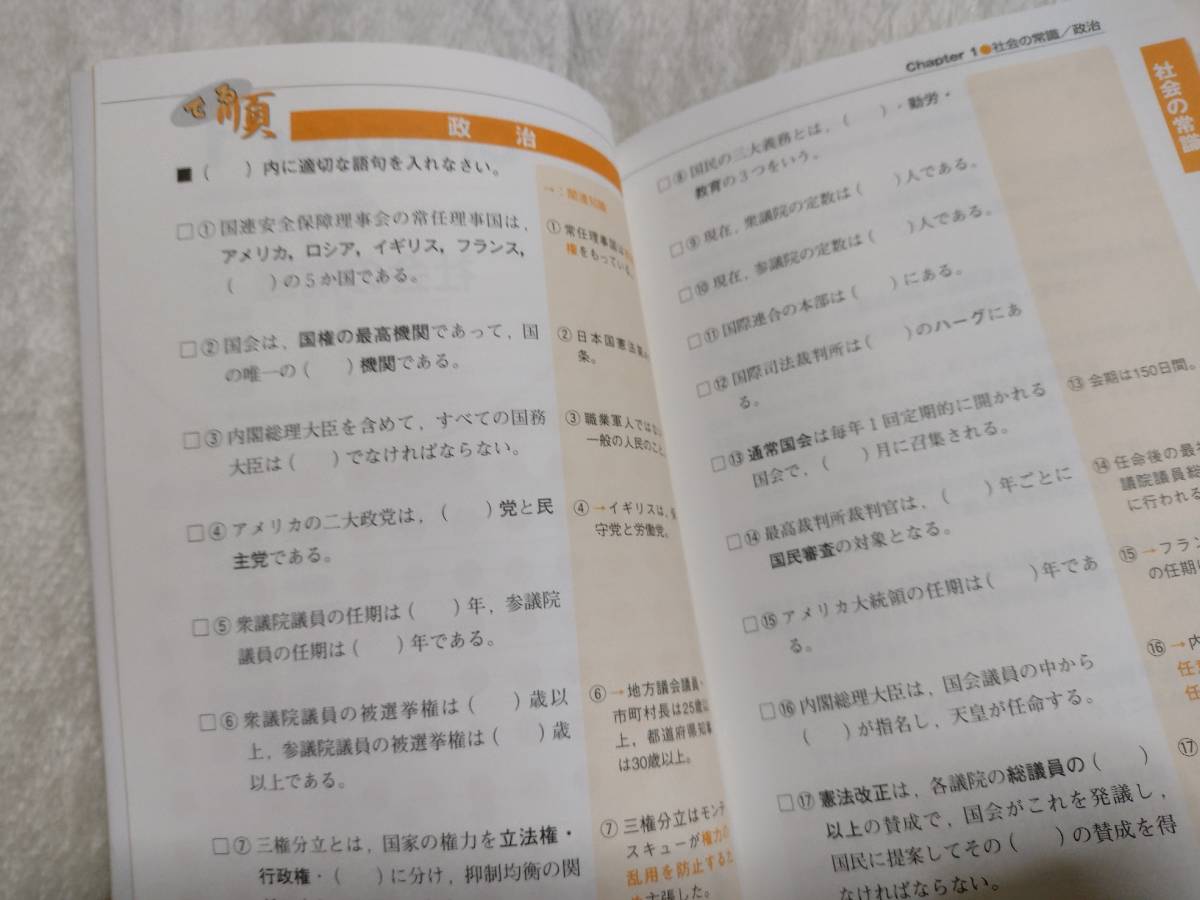 でる順
政治
■(　　)内に適切な語句を入れなさい。
□①国連安全保障理事会の常任理事国は，
アメリカ，ロシア，イギリス，フランス，
(　　)の5か国である。
□②国会は，国権の最高機関であって，国
の唯一の(　　)機関である。
□③内閣総理大臣を含めて，すべての国務
大臣は(　　)でなければならない。
□④アメリカの二大政党は，(　　)党と民
主党である。
□⑤衆議院議員の任期は(　　)年，参議院
議員の任期は(　　)年である。
□⑥衆議院議員の被選挙権は(　　)歳以
上，参議院議員の被選挙権は(　　)歳
以上である。
□⑦三権分立とは，国家の権力を立法権・
行政権・(　　)に分け，抑制均衡の関
→：関連知識
①常任理事国は
権をもっている。
②日本国憲法第
条。
③職業軍人ではない
一般の人民のこと。
④→イギリスは，
守党と労働党。
⑥→地方議会議員・
市町村長は25歳以
上，都道府県知事
は30歳以上。
⑦三権分立はモンテ
スキューが権力の
乱用を防止するた
主張した。
Chapter 1●社会の常識／政治
社会の常識
□⑧国民の三大義務とは，(　　)・勤労・
教育の3つをいう。
□⑨現在，衆議院の定数は(　　)人である。
□⑩現在，参議院の定数は(　　)人である。
□⑪国際連合の本部は(　　)にある。
□⑫国際司法裁判所は(　　)のハーグにあ
る。
□⑬通常国会は毎年1回定期的に開かれる
国会で，(　　)月に召集される。
□⑭最高裁判所裁判官は，(　　)年ごとに
国民審査の対象となる。
□⑮アメリカ大統領の任期は(　　)年であ
る。
□⑯内閣総理大臣は，国会議員の中から
(　　)が指名し，天皇が任命する。
□⑰憲法改正は，各議院の総議員の(　　)
以上の賛成で，国会がこれを発議し，
国民に提案してその(　　)の賛成を得
なければならない。
⑬会期は150日間。
⑭任命後の最初
議院議員総
に行われる
⑮→フラン
の任期
⑯→内
任
任
⑰